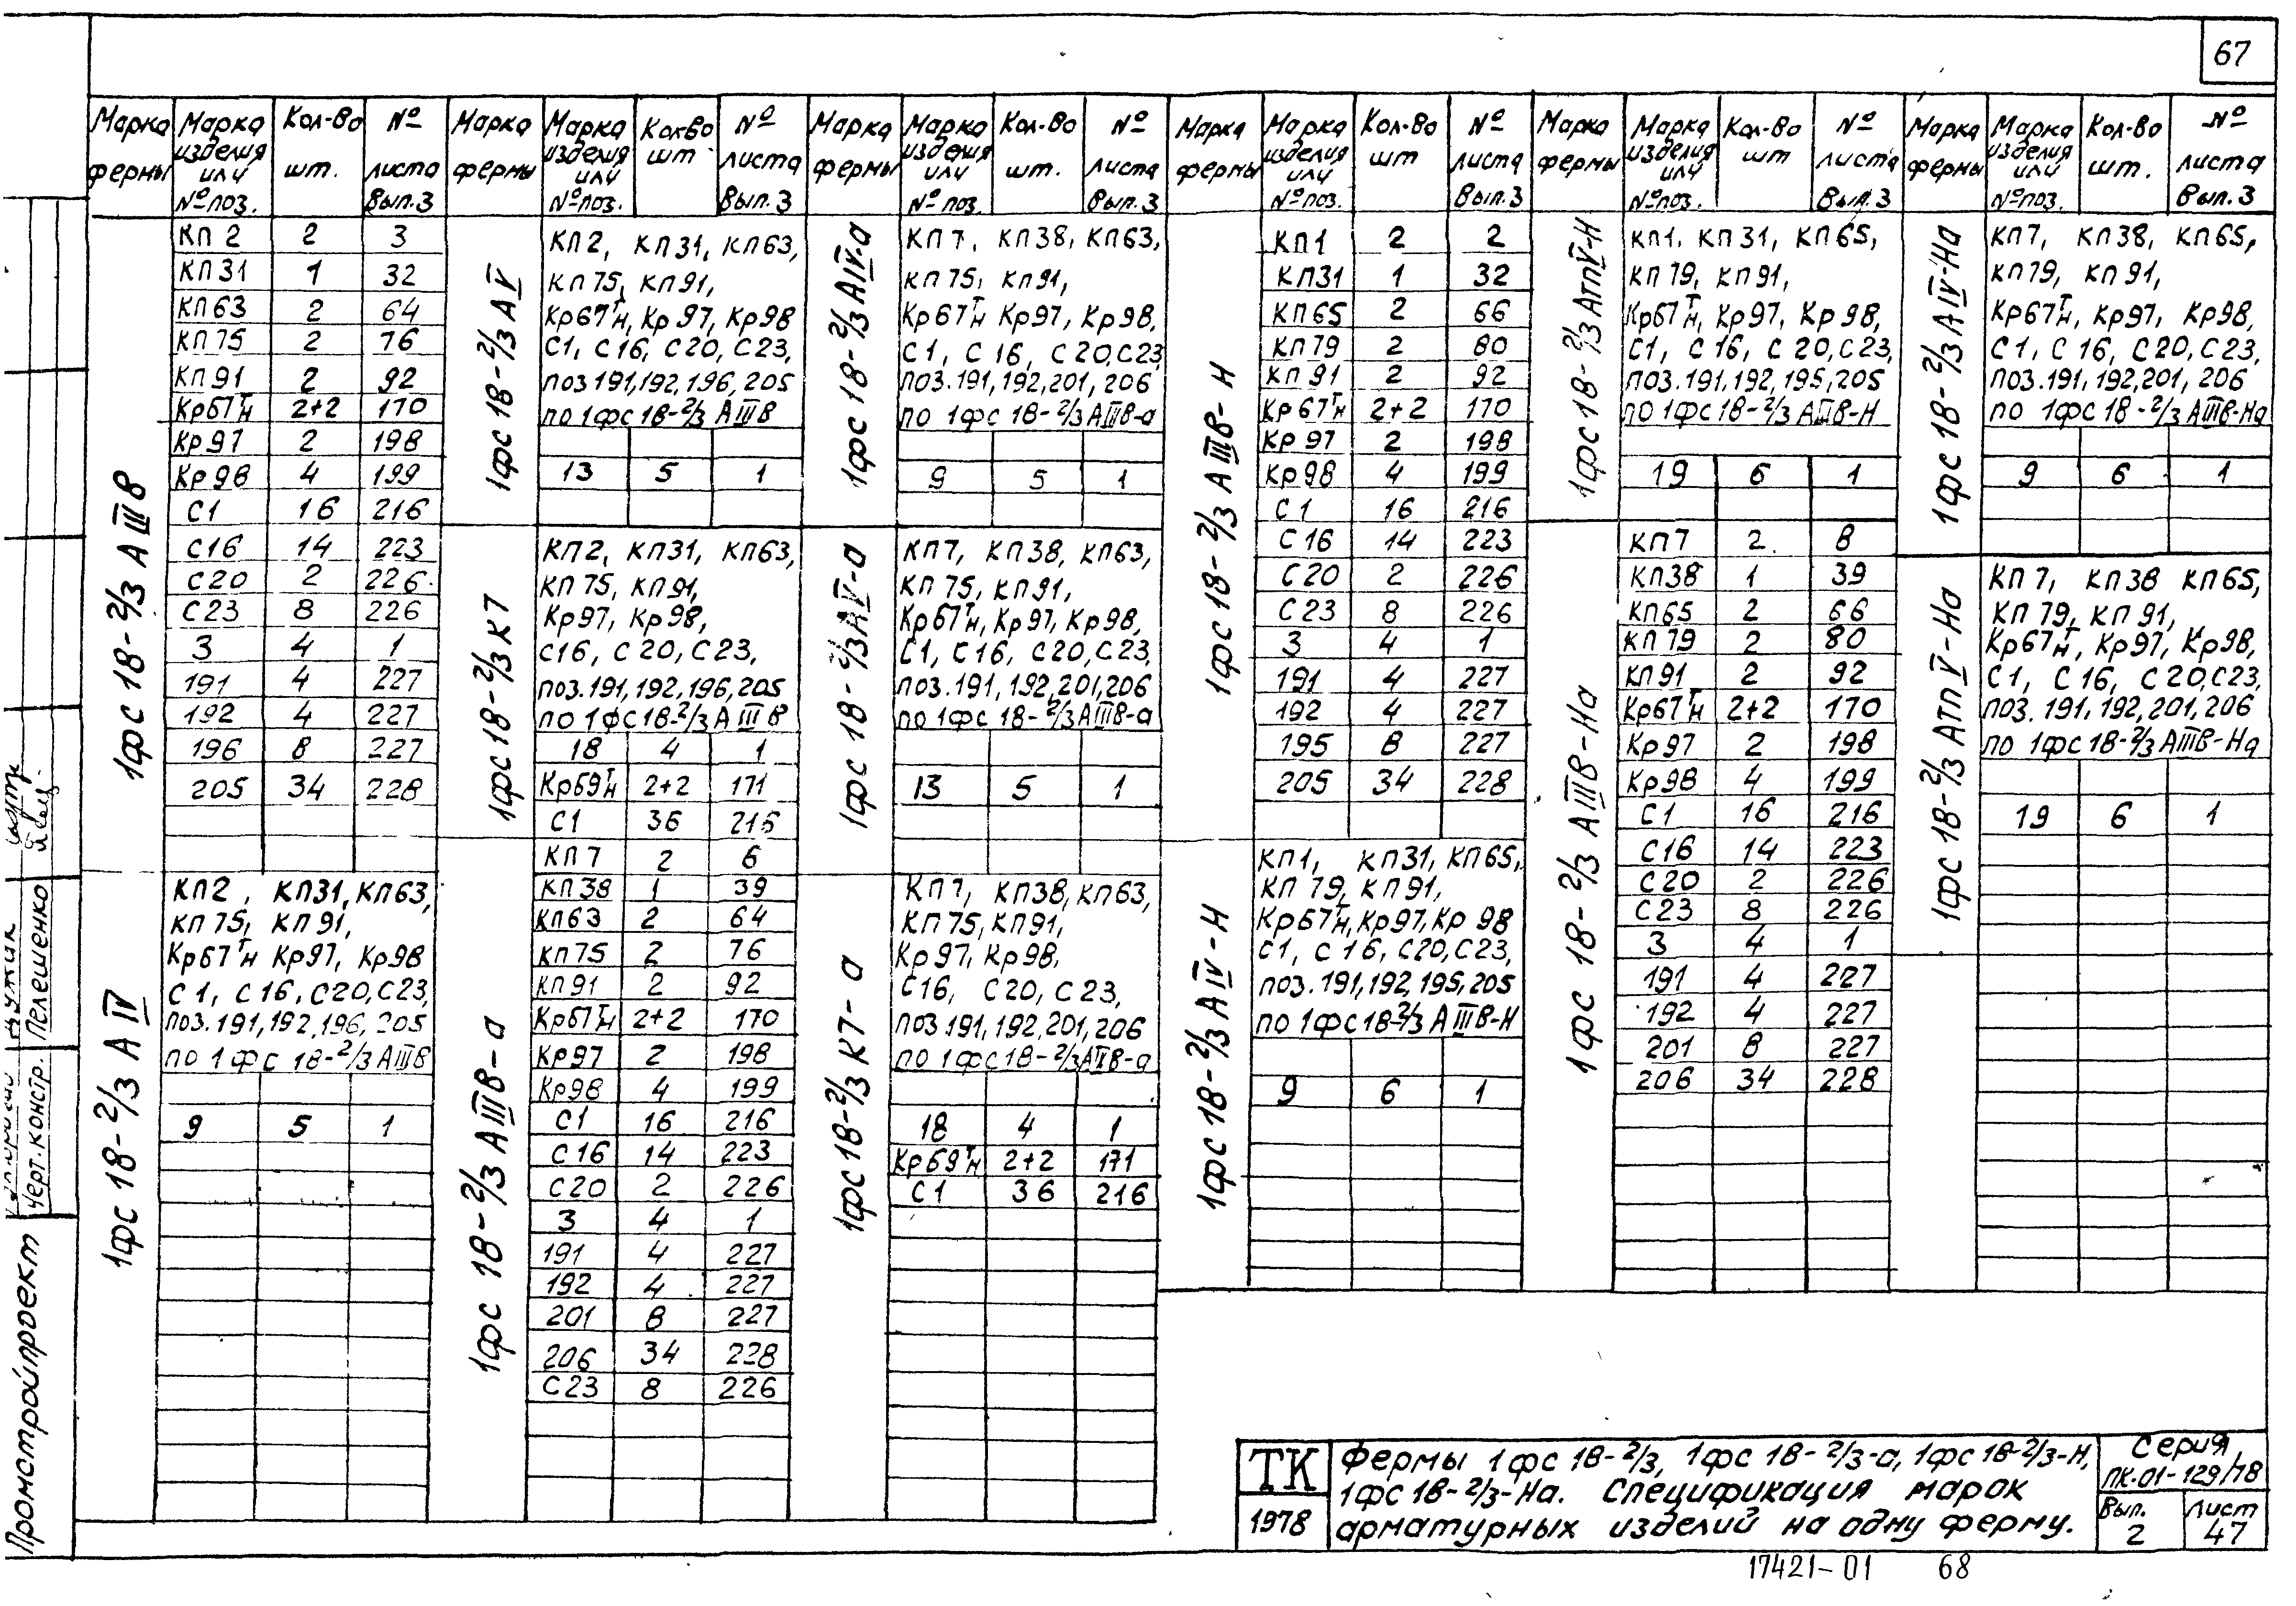 67
Марка фермы | Марка изделия или № поз. | Кол-во шт. | № листа Вып. 3
1фс 18-2/3 АIIIв
КП 2 | 2 | 3
КП 31 | 1 | 32
КП 63 | 2 | 64
КП 75 | 2 | 76
КП 91 | 2 | 92
Кр67тн | 2+2 | 170
Кр 97 | 2 | 198
Кр 98 | 4 | 199
С1 | 16 | 216
С16 | 14 | 223
С20 | 2 | 226
С23 | 8 | 226
3 | 4 | 1
191 | 4 | 227
192 | 4 | 227
196 | 8 | 227
205 | 34 | 228
1фс 18-2/3 АIV
КП2, КП31, КП63,
КП 75, КП 91,
Кр67тн Кр97, Кр98
С1, С16, С20, С23,
поз. 191, 192, 196, 205
по 1фс 18-2/3 АIIIв
9 | 5 | 1
Марка фермы | Марка изделия или № поз. | Кол-во шт | № листа Вып. 3
1фс 18-2/3 АV
КП2, КП31, КП63,
КП 75, КП91,
Кр67тн, Кр 97, Кр98
С1, С16, С20, С23,
поз 191, 192, 196, 205
по 1фс 18-2/3 АIIIв
13 | 5 | 1
1фс 18-2/3 К7
КП2, КП31, КП63,
КП 75, КП91,
Кр97, Кр98,
С16, С20, С23,
поз. 191, 192, 196, 205
по 1фс 18-2/3 АIIIв
18 | 4 | 1
Кр69тн | 2+2 | 171
С1 | 36 | 216
1фс 18-2/3 АIIIв-а
КП 7 | 2 | 6
КП38 | 1 | 39
КП63 | 2 | 64
КП75 | 2 | 76
КП91 | 2 | 92
Кр67тн | 2+2 | 170
Кр97 | 2 | 198
Кр98 | 4 | 199
С1 | 16 | 216
С16 | 14 | 223
С20 | 2 | 226
3 | 4 | 1
191 | 4 | 227
192 | 4 | 227
201 | 8 | 227
206 | 34 | 228
С23 | 8 | 226
Марка фермы | Марка изделия или № поз. | Кол-во шт. | № листа Вып. 3
1фс 18-2/3 АIV-а
КП 7, КП38, КП63,
КП 75, КП91,
Кр67тн Кр97, Кр98,
С1, С16, С20, С23
поз. 191, 192, 201, 206
по 1фс 18-2/3 АIIIв-а
9 | 5 | 1
1фс 18-2/3 АV-а
КП7, КП38, КП63,
КП 75, КП91,
Кр67тн, Кр97, Кр98,
С1, С16, С20, С23,
поз. 191, 192, 201, 206
по 1фс 18-2/3 АIIIв-а
13 | 5 | 1
1фс 18-2/3 К7-а
КП7, КП38, КП63,
КП75, КП91,
Кр97, Кр98,
С16, С20, С23,
поз 191, 192, 201, 206
по 1фс 18-2/3 АIIIв-а
18 | 4 | 1
Кр69тн | 2+2 | 171
С1 | 36 | 216
Марка фермы | Марка изделия или № поз. | Кол-во шт | № листа Вып. 3
1фс 18-2/3 АIIIв-Н
КП1 | 2 | 2
КП31 | 1 | 32
КП65 | 2 | 66
КП79 | 2 | 80
КП 91 | 2 | 92
Кр 67тн | 2+2 | 170
Кр 97 | 2 | 198
Кр98 | 4 | 199
С1 | 16 | 216
С16 | 14 | 223
С20 | 2 | 226
С23 | 8 | 226
3 | 4 | 1
191 | 4 | 227
192 | 4 | 227
195 | 8 | 227
205 | 34 | 228
1фс 18-2/3 АIV-Н
КП1, КП31, КП65,
КП 79, КП91,
Кр67тн, Кр97, Кр 98
С1, С16, С20, С23,
поз. 191, 192, 195, 205
по 1фс 18-2/3 АIIIв-Н
9 | 6 | 1
Марка фермы | Марка изделия или № поз. | Кол-во шт | № листа Вып. 3
1фс 18-2/3 АтпV-Н
КП1, КП31, КП65,
КП 79, КП91,
Кр67тн, Кр97, Кр 98,
С1, С16, С20, С23,
поз. 191, 192, 195, 205
по 1фс 18-2/3 АIIIв-Н
19 | 6 | 1
1фс 18-2/3 АIIIв-На
КП7 | 2 | 8
КП38 | 1 | 39
КП65 | 2 | 66
КП 79 | 2 | 80
КП91 | 2 | 92
Кр67тн | 2+2 | 170
Кр97 | 2 | 198
Кр98 | 4 | 199
С1 | 16 | 216
С16 | 14 | 223
С20 | 2 | 226
С23 | 8 | 226
3 | 4 | 1
191 | 4 | 227
192 | 4 | 227
201 | 8 | 227
206 | 34 | 228
Марка фермы | Марка изделия или № поз. | Кол-во шт. | № листа Вып. 3
1фс 18-2/3 АIV-На
КП7, КП38, КП65,
КП79, КП91,
Кр67тн, Кр97, Кр98,
С1, С16, С20, С23,
поз. 191, 192, 201, 206
по 1фс 18-2/3 АIIIв-На
9 | 6 | 1
1фс 18-2/3 АтпV-На
КП 7, КП38 КП65,
КП 79, КП 91,
Кр67тн, Кр97, Кр98,
С1, С16, С20, С23,
поз. 191, 192, 201, 206
по 1фс 18-2/3 АIIIв-На
19 | 6 | 1
Промстройпроект
Черт. констр. Пелешенко
ТК
1978
Фермы 1фс 18-2/3, 1фс 18-2/3-а, 1фс 18-2/3-Н,
1фс 18-2/3-На. Спецификация марок
арматурных изделий на одну ферму.
Серия
ПК-01-129/78
Вып. 2
Лист 47
17421-01 68